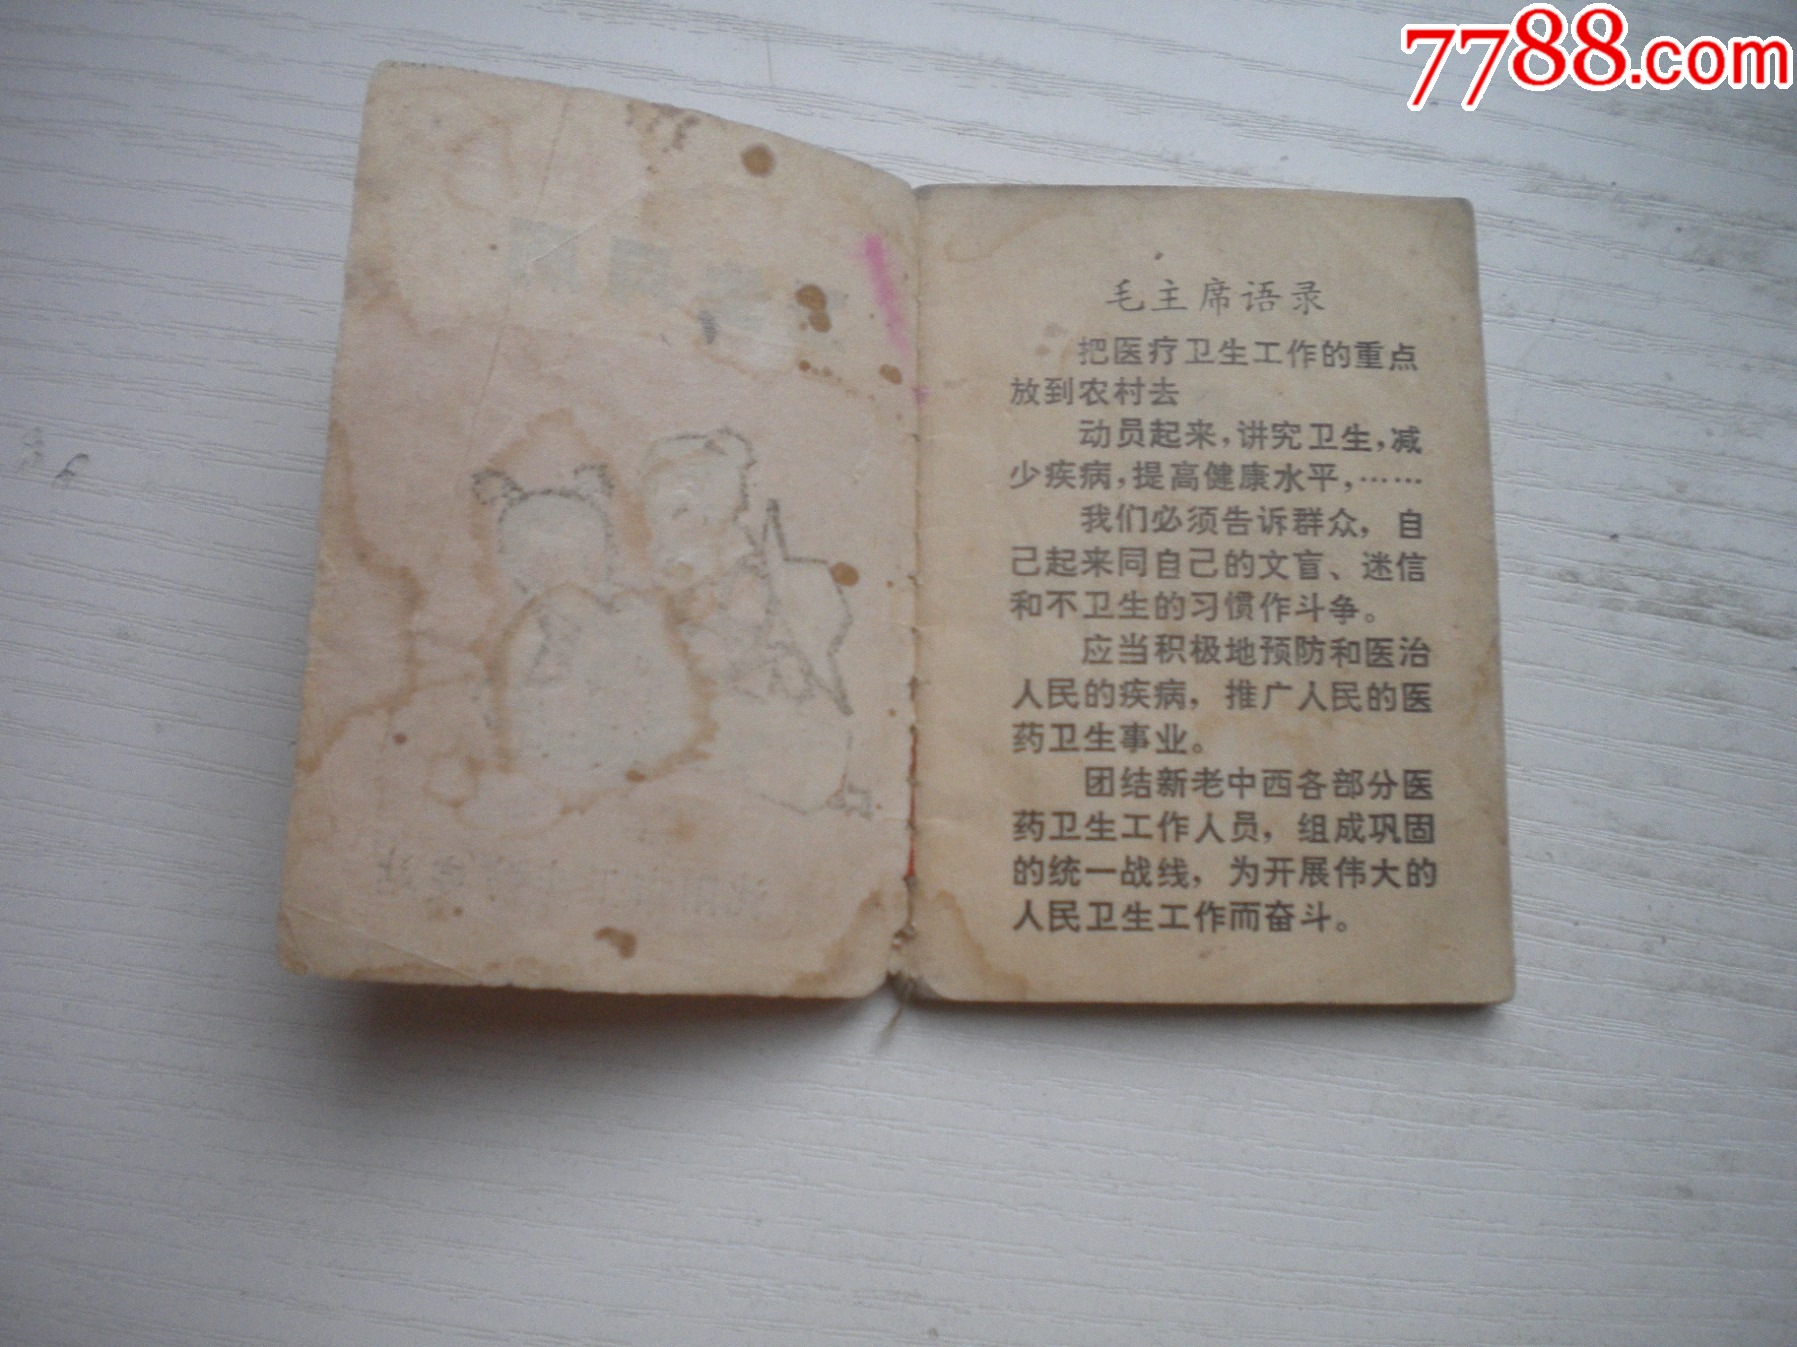 7788.com
毛主席语录
把医疗卫生工作的重点
放到农村去
动员起来，讲究卫生，减
少疾病，提高健康水平，……
我们必须告诉群众，自
己起来同自己的文盲、迷信
和不卫生的习惯作斗争。
应当积极地预防和医治
人民的疾病，推广人民的医
药卫生事业。
团结新老中西各部分医
药卫生工作人员，组成巩固
的统一战线，为开展伟大的
人民卫生工作而奋斗。